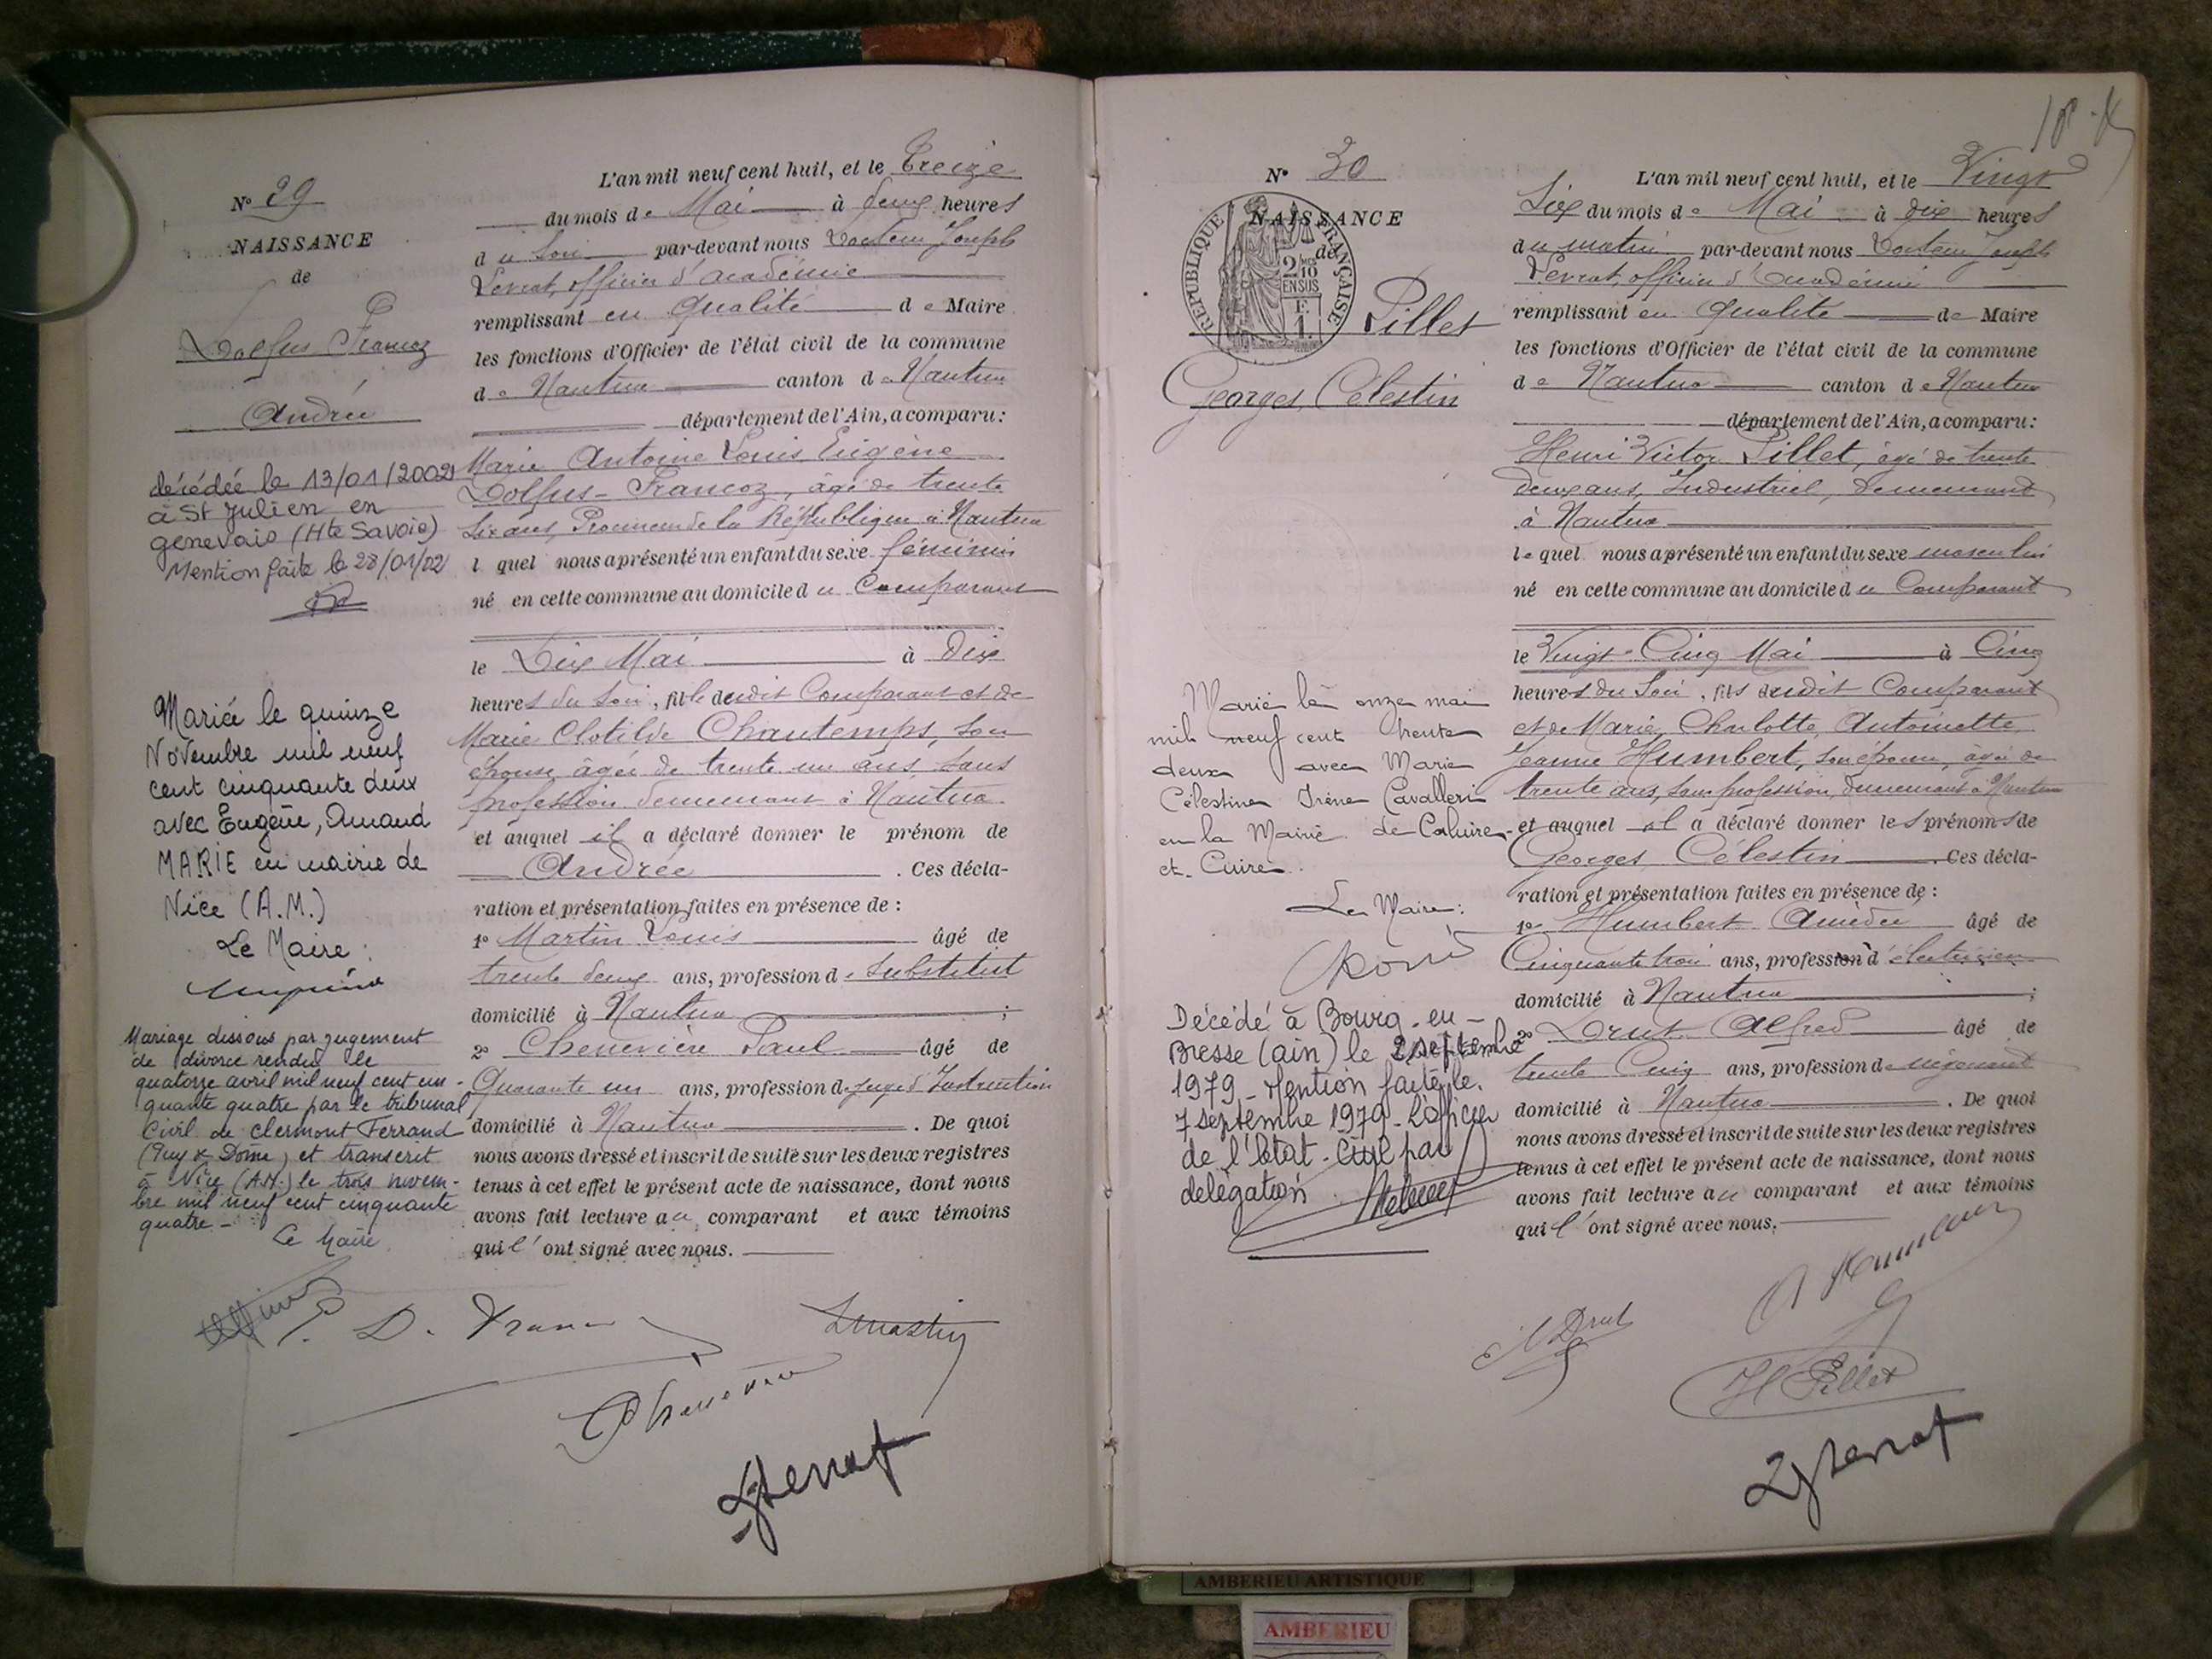 N° 29
NAISSANCE
de
Dolfus Francoz
Andrée
décédée le 13/01/2002
à St Julien en
genevois (Hte Savoie)
Mention faite le 28/01/02
Mariée le quinze
Novembre mil neuf
cent cinquante deux
avec Eugène, Amand
MARIE en mairie de
Nice (A.M.)
Le Maire :
Mariage dissous par jugement
de divorce rendu le
quatorze avril mil neuf cent cin-
quante quatre par le tribunal
Civil de Clermont Ferrand
(Puy de Dome) et transcrit
à Nice (A.M.) le trois novem-
bre mil neuf cent cinquante
quatre -
Le Maire
L'an mil neuf cent huit, et le Treize
du mois de Mai à deux heures
du soir par-devant nous Docteur Joseph
Levrat, officier d'académie
remplissant en qualité de Maire
les fonctions d'Officier de l'état civil de la commune
de Nantua canton de Nantua
département de l'Ain, a comparu :
Marie Antoine Louis Eugène
Dolfus-Francoz, âgé de trente
six ans, Procureur de la République à Nantua
l quel nous a présenté un enfant du sexe féminin
né en cette commune au domicile du Comparant
le Dix Mai à Dix
heures du soir, fille dudit Comparant et de
Marie Clotilde Chautemps, son
épouse, âgée de trente un ans, sans
profession demeurant à Nantua
et auquel il a déclaré donner le prénom de
Andrée . Ces décla-
ration et présentation faites en présence de :
1° Martin Louis âgé de
trente deux ans, profession de Substitut
domicilié à Nantua ;
2° Chenevière Paul âgé de
Quarante un ans, profession de Juge d'Instruction
domicilié à Nantua . De quoi
nous avons dressé et inscrit de suite sur les deux registres
tenus à cet effet le présent acte de naissance, dont nous
avons fait lecture au comparant et aux témoins
qui l'ont signé avec nous.
N° 30
NAISSANCE
de
RÉPUBLIQUE FRANÇAISE
2/10
EN SUS
F.
1.
Pillet
Georges, Célestin
Marié le onze mai
mil neuf cent trente
deux avec Marie
Célestine Irène Cavalleri
en la Mairie de Caluire-
et-Cuire.
Le Maire :
Décédé à Bourg-en-
Bresse (ain) le 2 septembre
1979 - Mention faite le
7 septembre 1979 - L'officier
de l'Etat-Civil par
délégation
L'an mil neuf cent huit, et le Vingt
Six du mois de Mai à dix heures
du matin par-devant nous Docteur Joseph
Levrat, officier d'Académie
remplissant en qualité de Maire
les fonctions d'Officier de l'état civil de la commune
de Nantua canton de Nantua
département de l'Ain, a comparu :
Henri Victor Pillet, âgé de trente
deux ans, Industriel, demeurant
à Nantua
lequel nous a présenté un enfant du sexe masculin
né en cette commune au domicile du Comparant
le Vingt-Cinq Mai à Cinq
heures du soir, fils dudit Comparant
et de Marie, Charlotte, Antoinette
Jeanne Humbert, son épouse, âgée de
trente ans, sans profession, demeurant à Nantua
et auquel il a déclaré donner les prénoms de
Georges, Célestin . Ces décla-
ration et présentation faites en présence de :
1° Humbert Amédée âgé de
Cinquante trois ans, profession d'électricien
domicilié à Nantua ;
2° Drut Alfred âgé de
trente Cinq ans, profession de négociant
domicilié à Nantua . De quoi
nous avons dressé et inscrit de suite sur les deux registres
tenus à cet effet le présent acte de naissance, dont nous
avons fait lecture au comparant et aux témoins
qui l'ont signé avec nous.
A Drut
H Pillet
AMBERIEU ARTISTIQUE
AMBERIEU